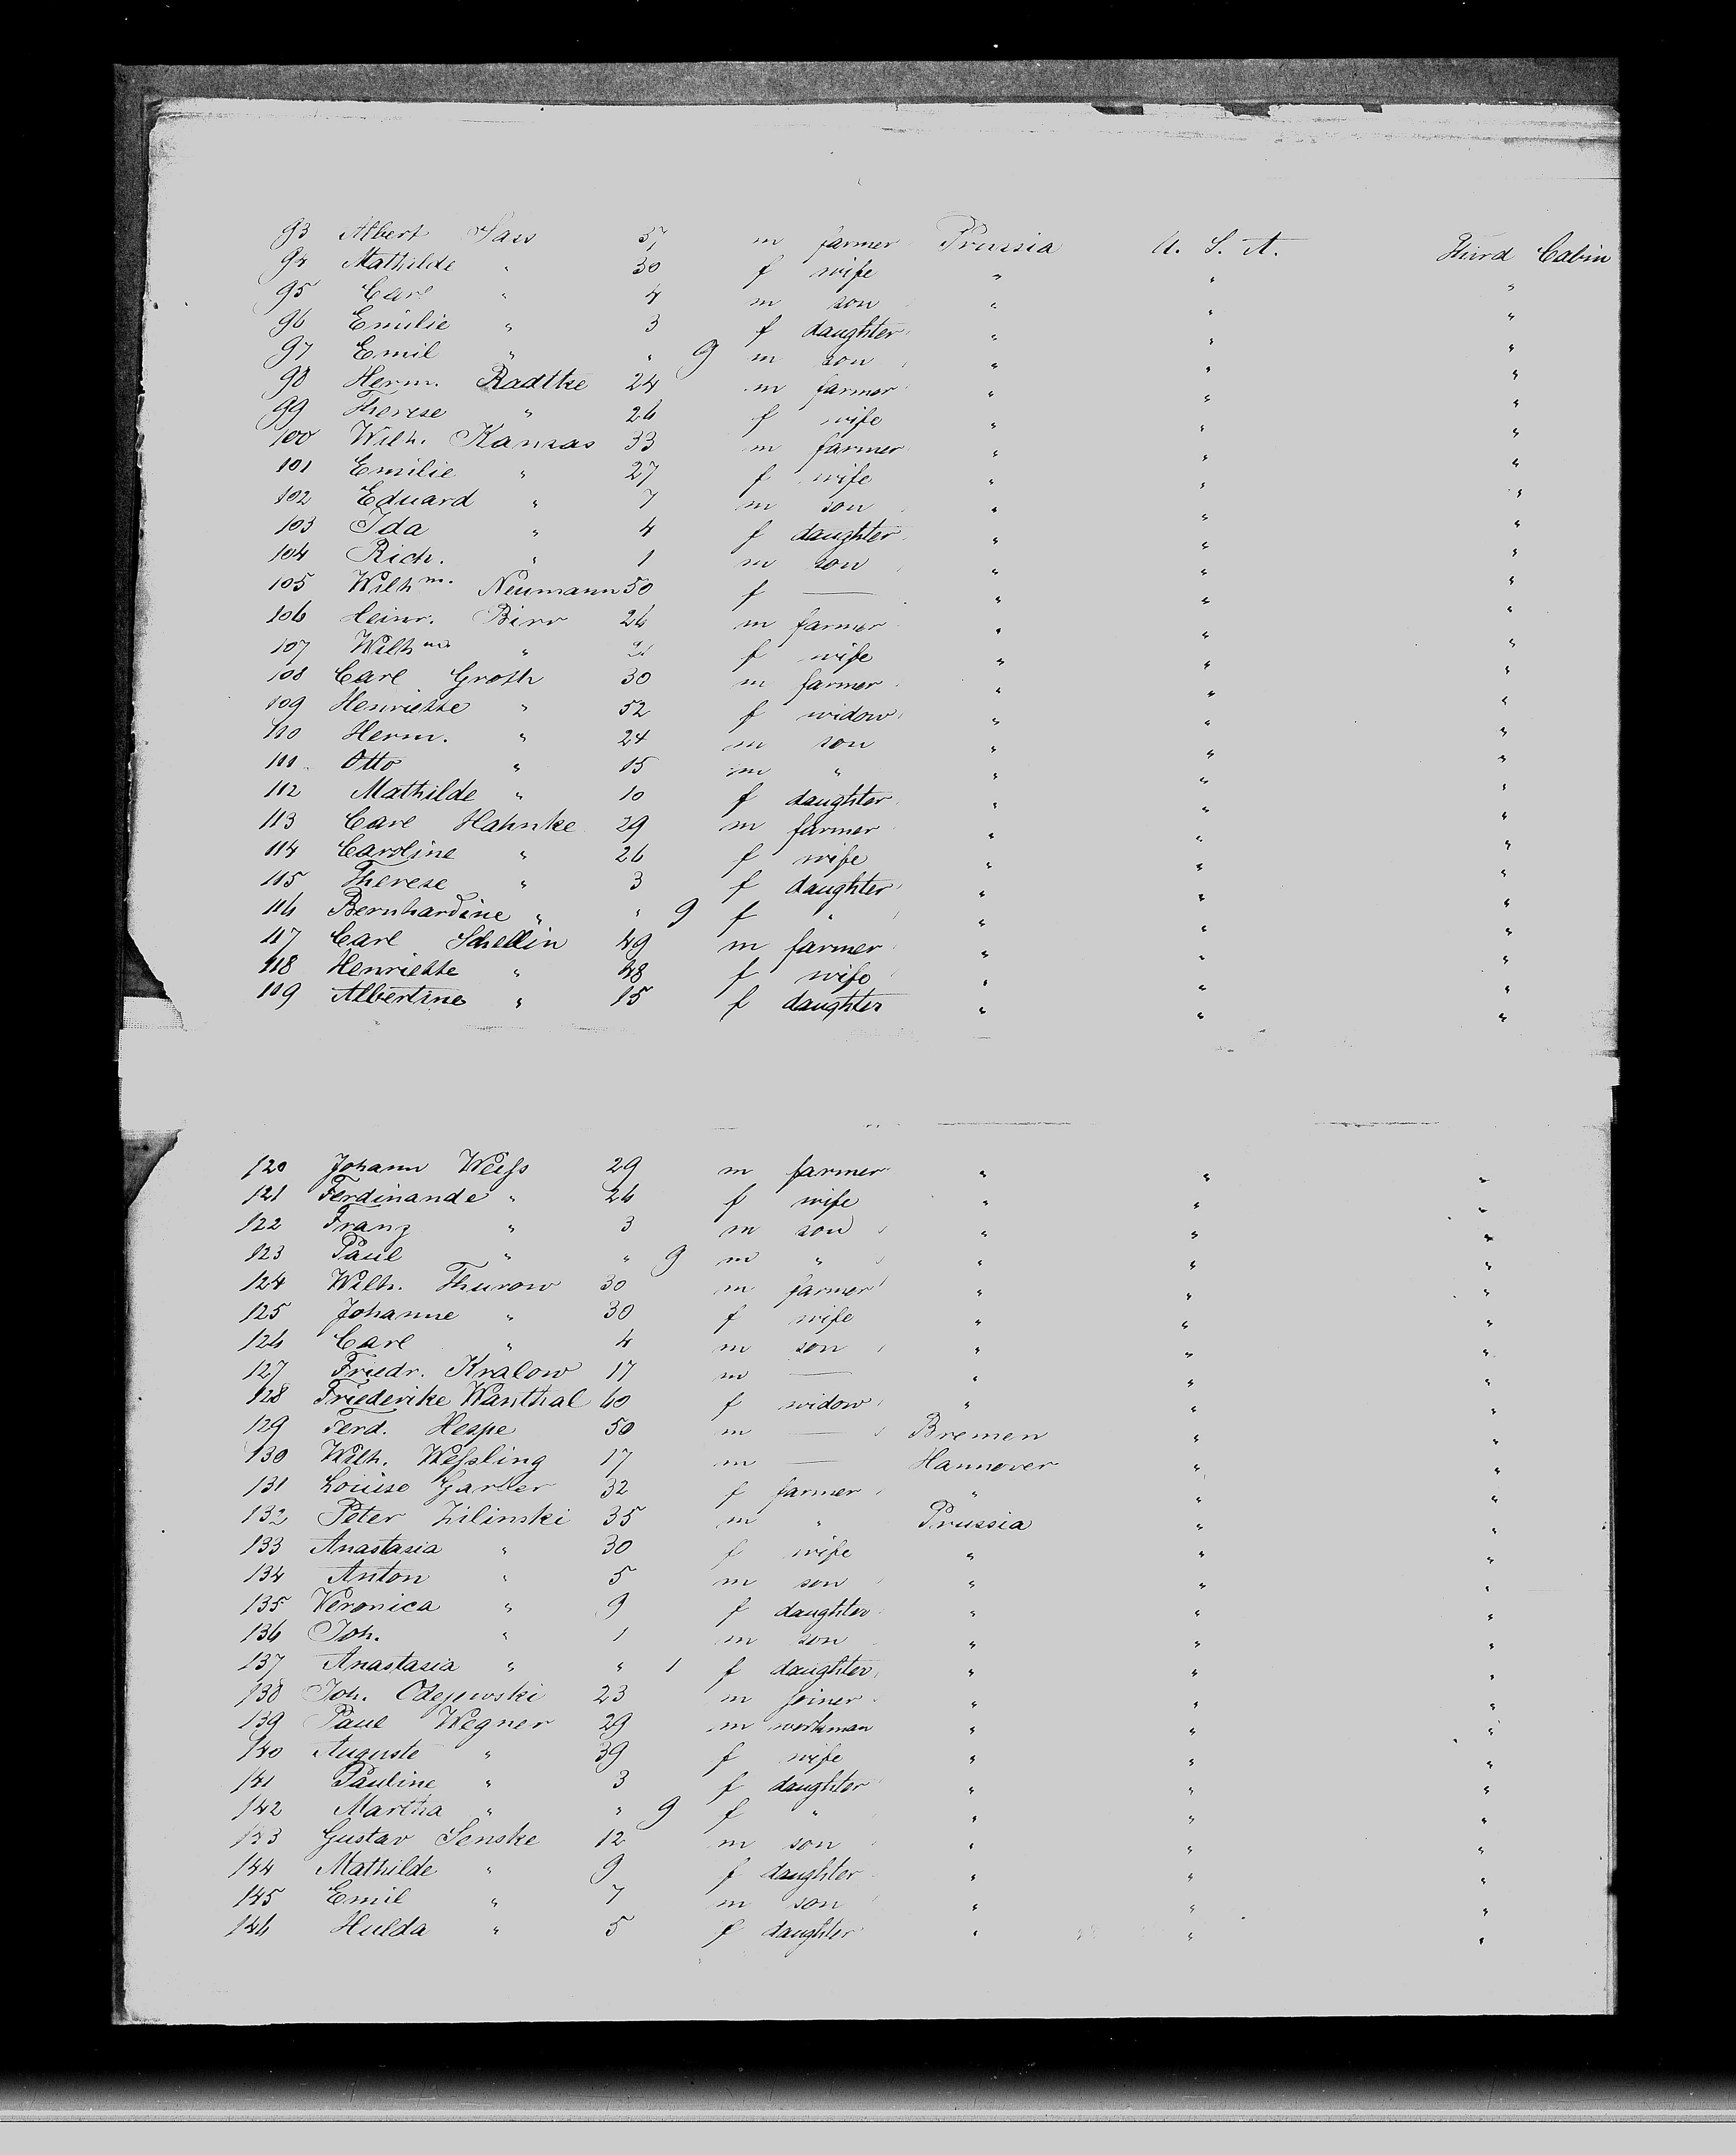 93 Albert Sass 37 m farmer Prussia U. S. A. Third Cabin
94 Mathilde " 30 f wife " " "
95 Carl " 4 m son " " "
96 Emilie " 3 f daughter " " "
97 Emil " " 9 m son " " "
98 Herm. Radtke 24 m farmer " " "
99 Therese " 26 f wife " " "
100 Wilh. Kansas 33 m farmer " " "
101 Emilie " 27 f wife " " "
102 Eduard " 7 m son " " "
103 Ida " 4 f daughter " " "
104 Rich. " 1 m son " " "
105 Wilhne. Neumann 50 f — " " "
106 Heinr. 26 m farmer " " "
107 Wilhne " f wife " " "
108 Carl Groth 30 m farmer " " "
109 Henriette " 52 f widow " " "
110 Herm. " 24 m son " " "
111 Otto " 15 m " " " "
112 Mathilde " 10 f daughter " " "
113 Carl Hahnke 29 m farmer " " "
114 Caroline " 26 f wife " " "
115 Therese " 3 f daughter " " "
116 Bernhardine " " 9 f " " " "
117 Carl Schellin 49 m farmer " " "
118 Henriette " 48 f wife " " "
119 Albertine " 15 f daughter " " "
120 Johann Weiss 29 m farmer " " "
121 Ferdinande " 26 f wife " " "
122 Franz " 3 m son " " "
123 Paul " " 9 m " " " "
124 Wilh. Thurow 30 m farmer " " "
125 Johanne " 30 f wife " " "
126 Carl " 4 m son " " "
127 Friedr. Kralow 17 m — " " "
128 Friederike Wanthal 60 f widow " " "
129 Ferd. Hespe 50 m — Bremen " "
130 Wilh. Wessling 17 m — Hannover " "
131 Louise Garber 32 f farmer " " "
132 Peter Zilinski 35 m " Prussia " "
133 Anastasia " 30 f wife " " "
134 Anton " 5 m son " " "
135 Veronica " 9 f daughter " " "
136 Joh. " 1 m son " " "
137 Anastasia " " 1 f daughter " " "
138 Joh. Odejewski 23 m joiner " " "
139 Paul Wegner 29 m workman " " "
140 Auguste " 39 f wife " " "
141 Pauline " 3 f daughter " " "
142 Martha " " 9 f " " " "
143 Gustav Senske 12 m son " " "
144 Mathilde " 9 f daughter " " "
145 Emil " 7 m son " " "
146 Hulda " 5 f daughter " " "